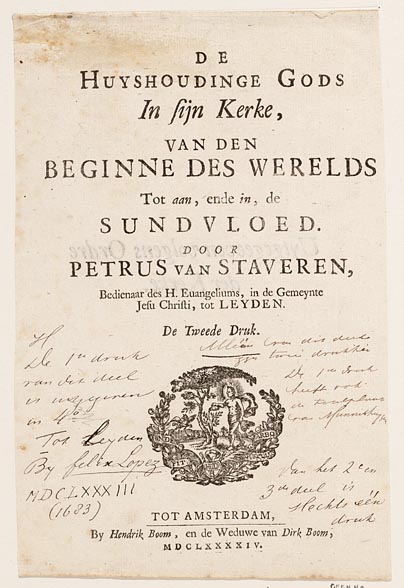 DE
HUYSHOUDINGE GODS
In sijn Kerke,
VAN DEN
BEGINNE DES WERELDS
Tot aan, ende in, de
SUNDVLOED.
DOOR
PETRUS VAN STAVEREN,
Bedienaar des H. Euangeliums, in de Gemeynte
Jesu Christi, tot LEYDEN.
De Tweede Druk.
Alleen van dit deel
zijn twee drukken
H.
De 1e druk
van dit deel
is uitgegeven
in 4o
Tot Leyden
By felix Lopez
MDCLXXXIII
(1683)
De 1e druk
heeft ook
Van het 2e en
3de deel is
slechts één
druk
TOT AMSTERDAM,
By Hendrik Boom, en de Weduwe van Dirk Boom,
MDCLXXXXIV.